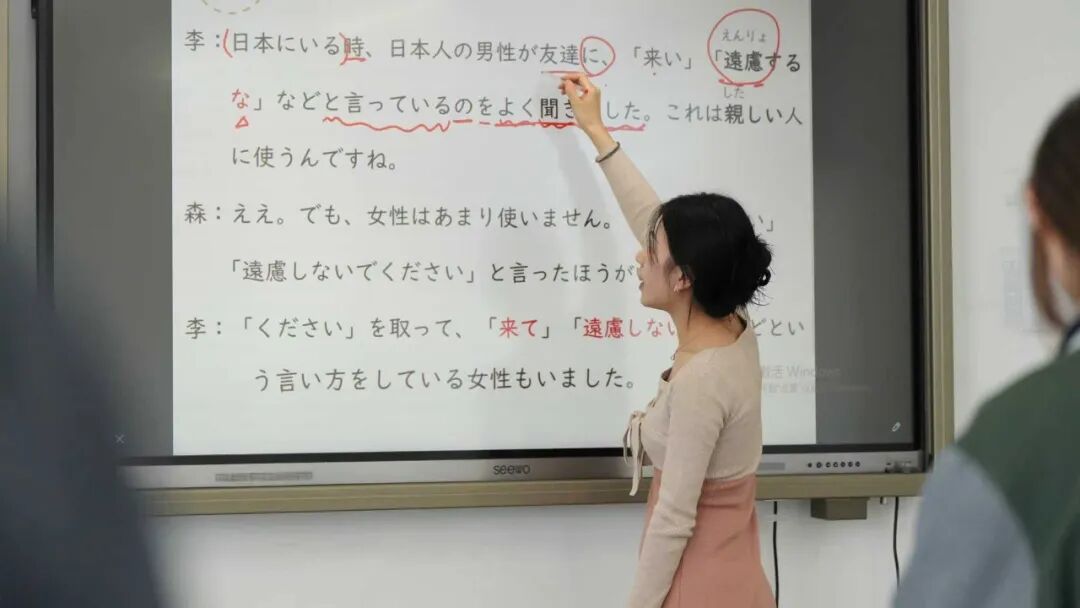 李：日本にいる時、日本人の男性が友達に、「来い」「遠慮する
えんりょ
な」などと言っているのをよく聞き した。これは親しい人
した
に使うんですね。
森：ええ。でも、女性はあまり使いません。 い」
「遠慮しないでください」と言ったほうが
李：「ください」を取って、「来て」「遠慮しない どとい
う言い方をしている女性もいました。
活 Windows
seewo